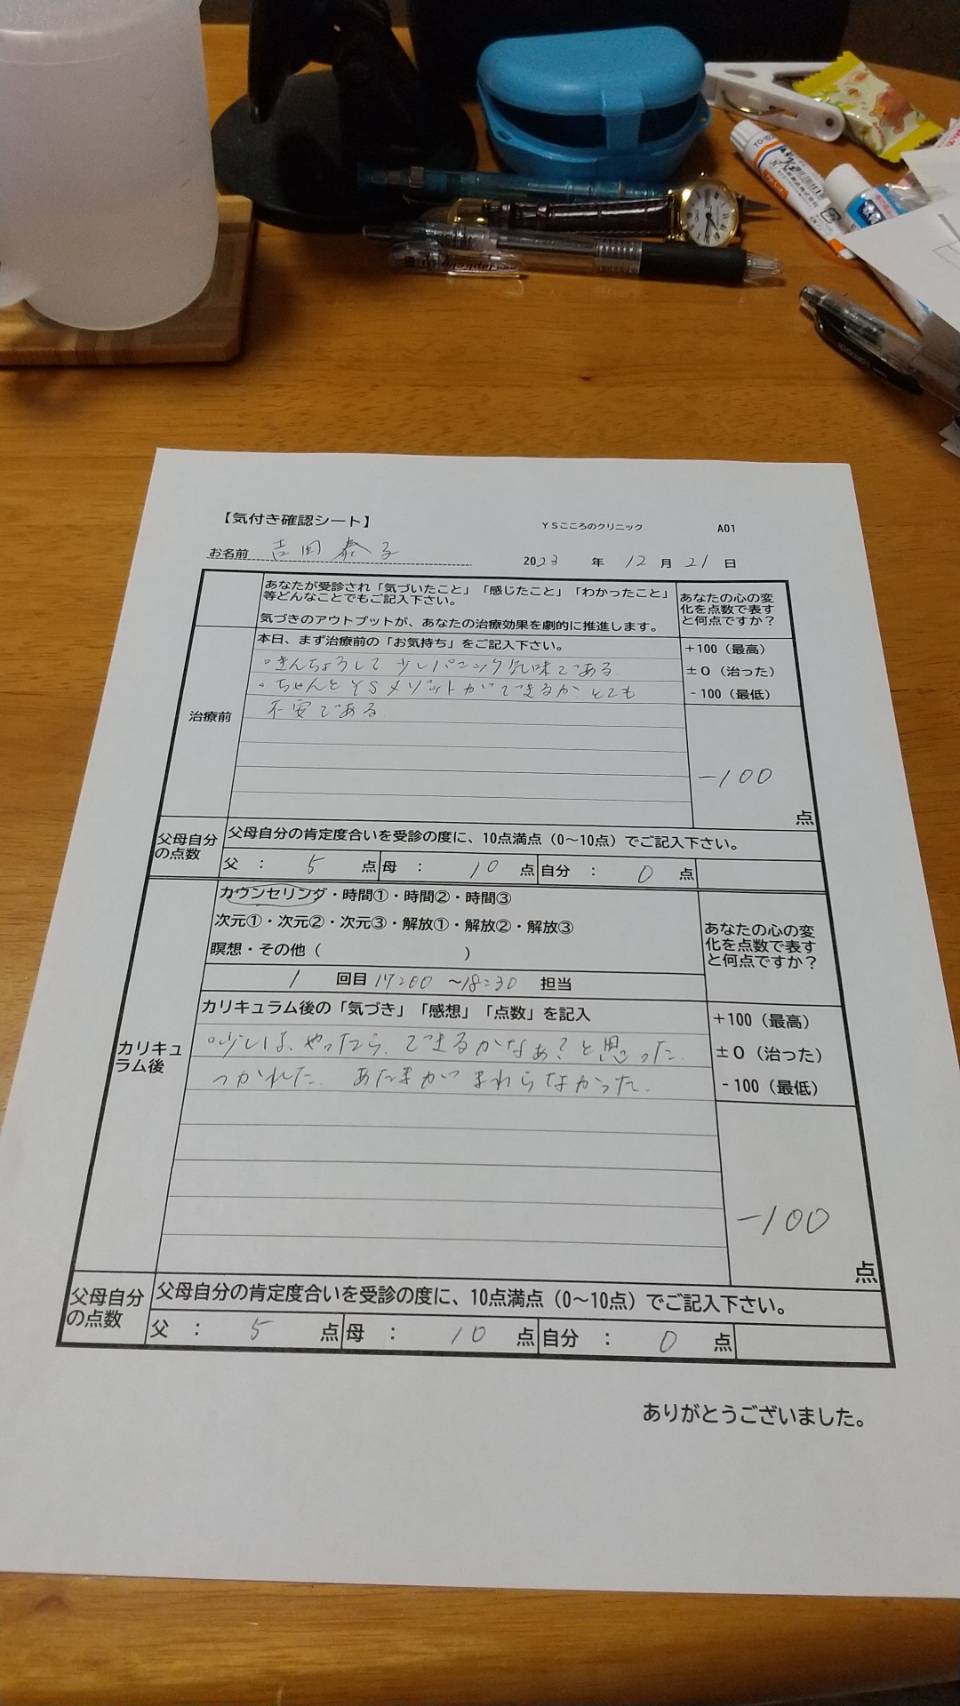 【気付き確認シート】 YSこころのクリニック A01
お名前 吉岡 泰子 2023 年 12 月 21 日
あなたが受診され「気づいたこと」「感じたこと」「わかったこと」
等どんなことでもご記入下さい。
気づきのアウトプットが、あなたの治療効果を劇的に推進します。
あなたの心の変
化を点数で表す
と何点ですか？
治療前
本日、まず治療前の「お気持ち」をご記入下さい。
。きんちょうして少しパニック気味である
。ちゃんとYSメソットができるかとても
不安である
+100（最高）
±0（治った）
-100（最低）
-100
点
父母自分
の点数
父母自分の肯定度合いを受診の度に、10点満点（0～10点）でご記入下さい。
父 ： 5 点 母 ： 10 点 自分 ： 0 点
カリキュ
ラム後
カウンセリング・時間①・時間②・時間③
次元①・次元②・次元③・解放①・解放②・解放③
瞑想・その他（ ）
1 回目 17:00 ～18:30 担当
あなたの心の変
化を点数で表す
と何点ですか？
カリキュラム後の「気づき」「感想」「点数」を記入
。少しは、やったら、できるかなぁ？と思った.
つかれた. あたまがまわらなかった.
+100（最高）
±0（治った）
-100（最低）
-100
点
父母自分
の点数
父母自分の肯定度合いを受診の度に、10点満点（0～10点）でご記入下さい。
父 ： 5 点 母 ： 10 点 自分 ： 0 点
ありがとうございました。